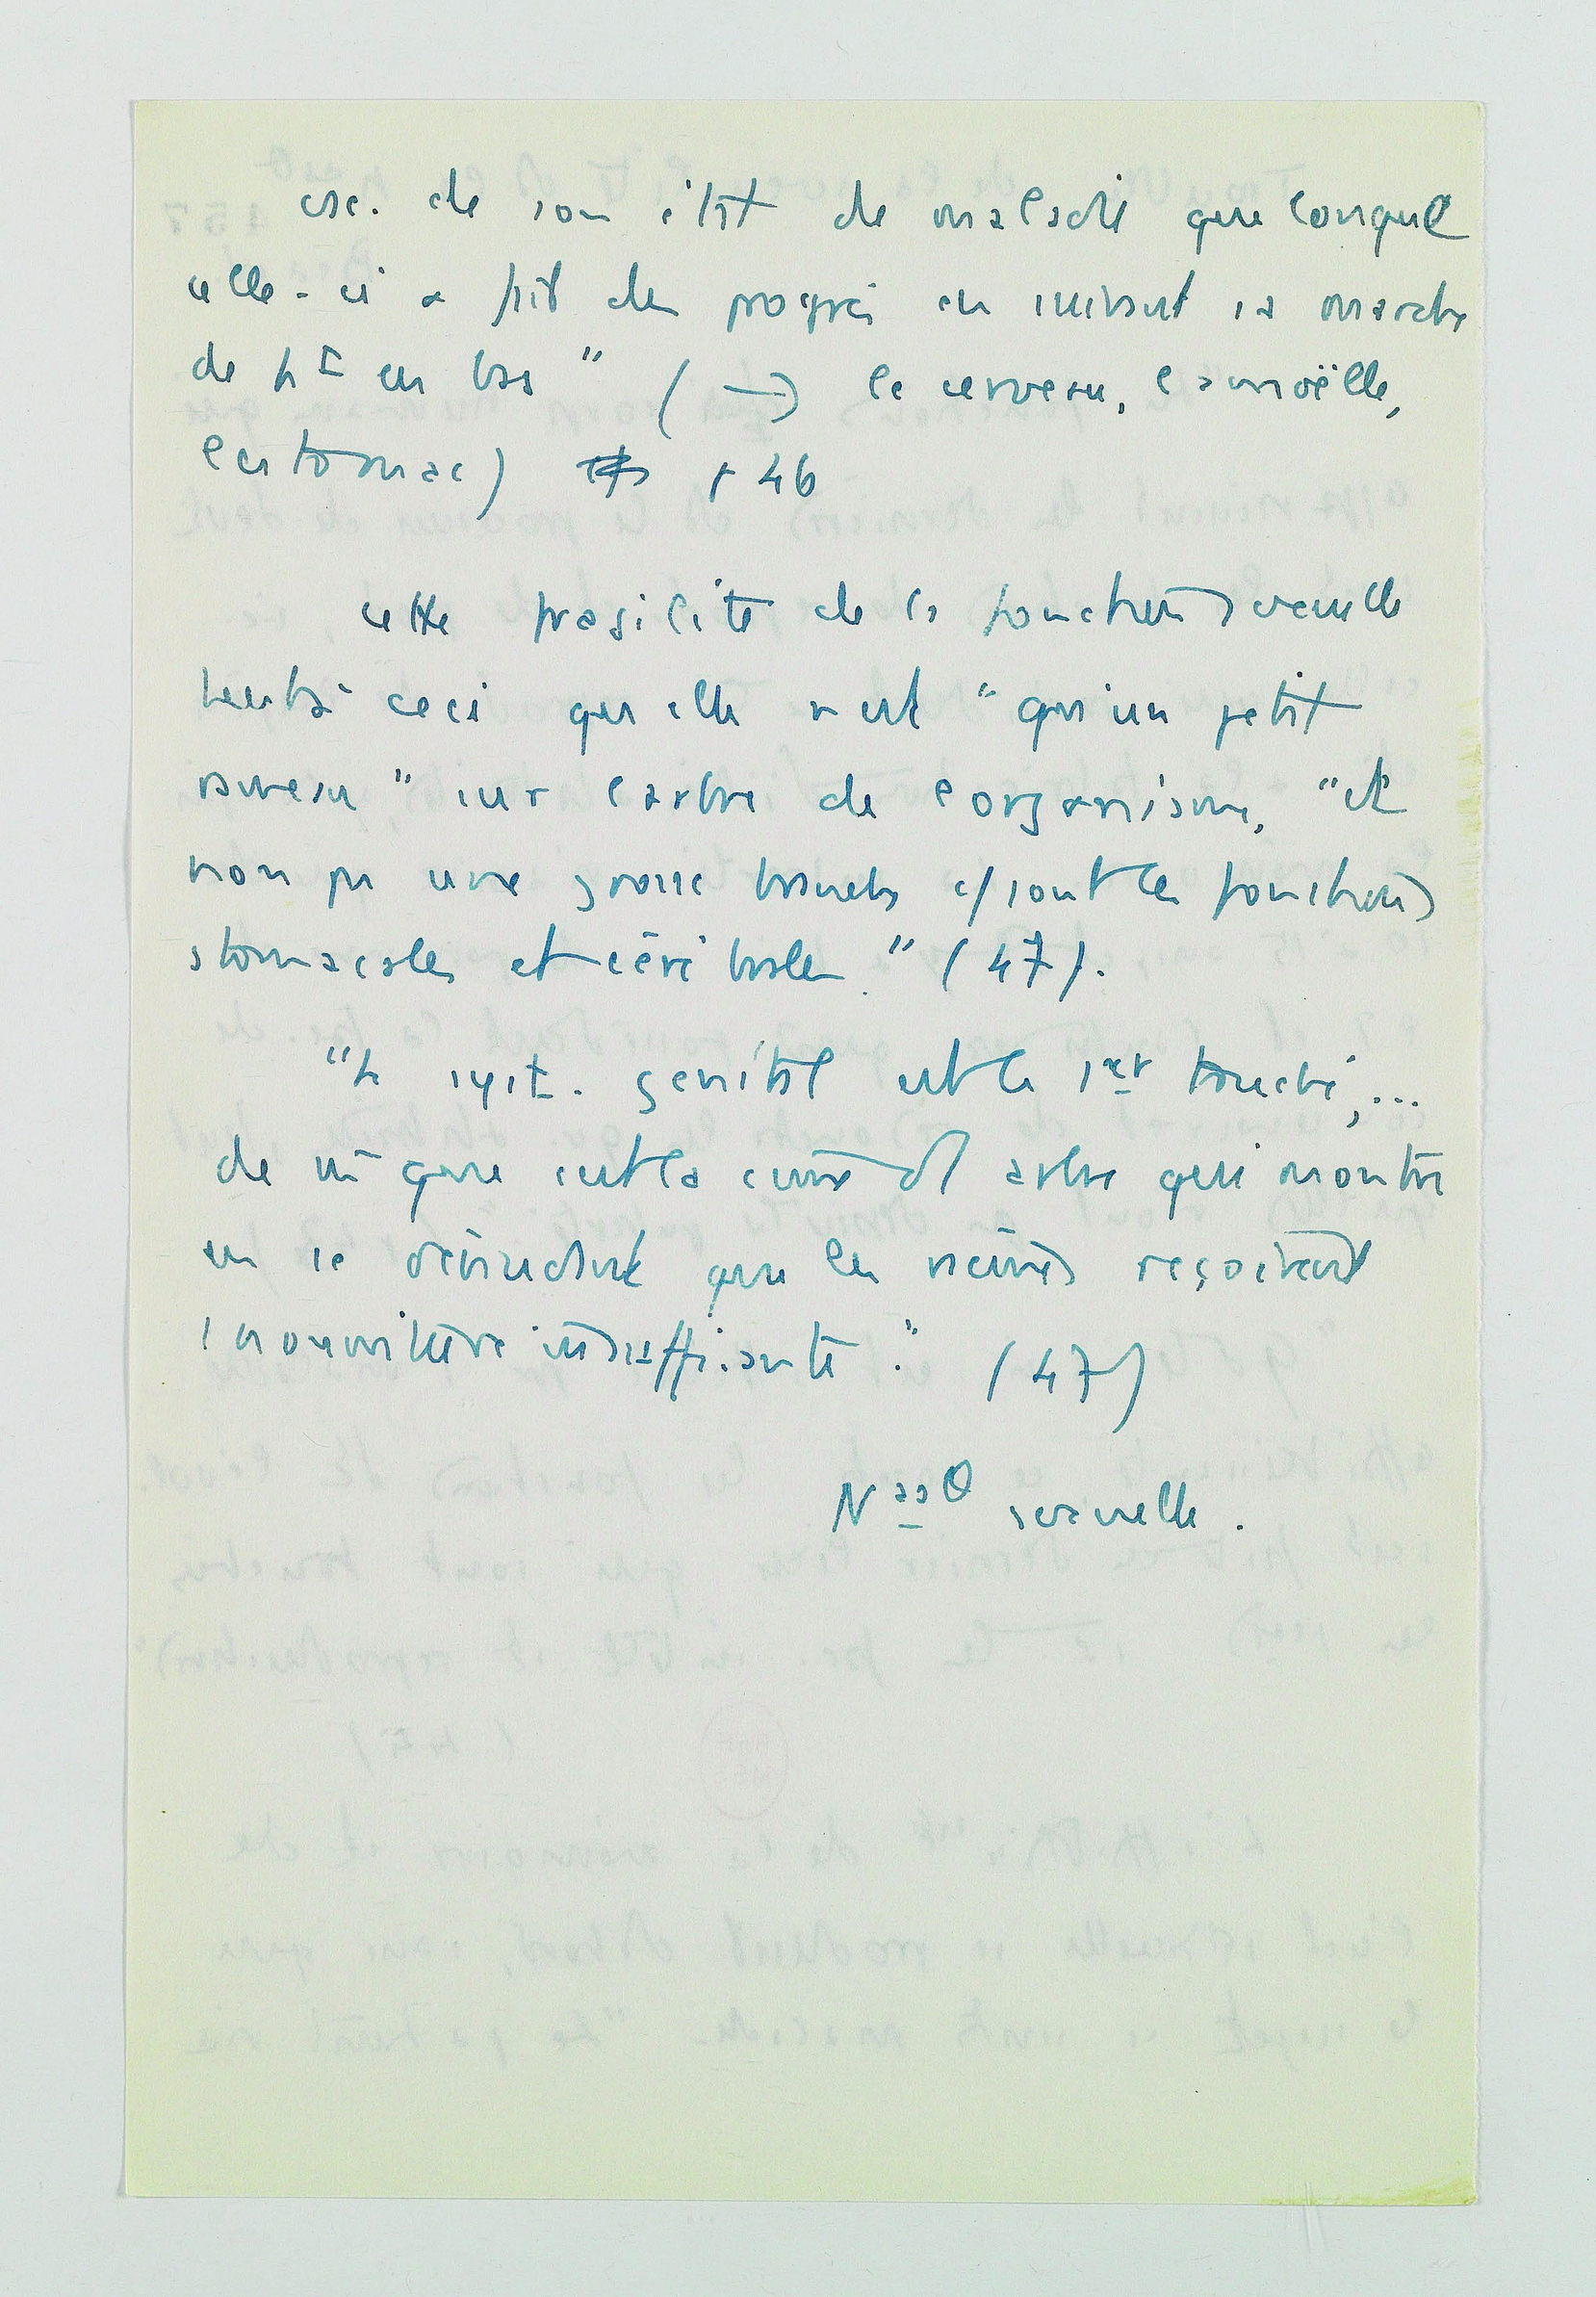 csc. de son état de maladie quelconque
celle-ci a fait des progrès en suivant sa marche
de ht en bas" (→ le cerveau, la moëlle,
l'estomac) p 46
Cette fragilité de la fonction sexuelle
tient à ceci qu'elle n'est "qu'un petit
rameau" sur l'arbre de l'organisme, "et
non pas une grosse branche c/ sont les fonctions
stomacales et cérébrales." (47).
"Le syst. génital est le 1er touché, ...
de m̂ que c'est la cime d'1 arbre qui montre
en se dénudant que les racines reçoivent
1 nourriture insuffisante." (47)
sexuelle.